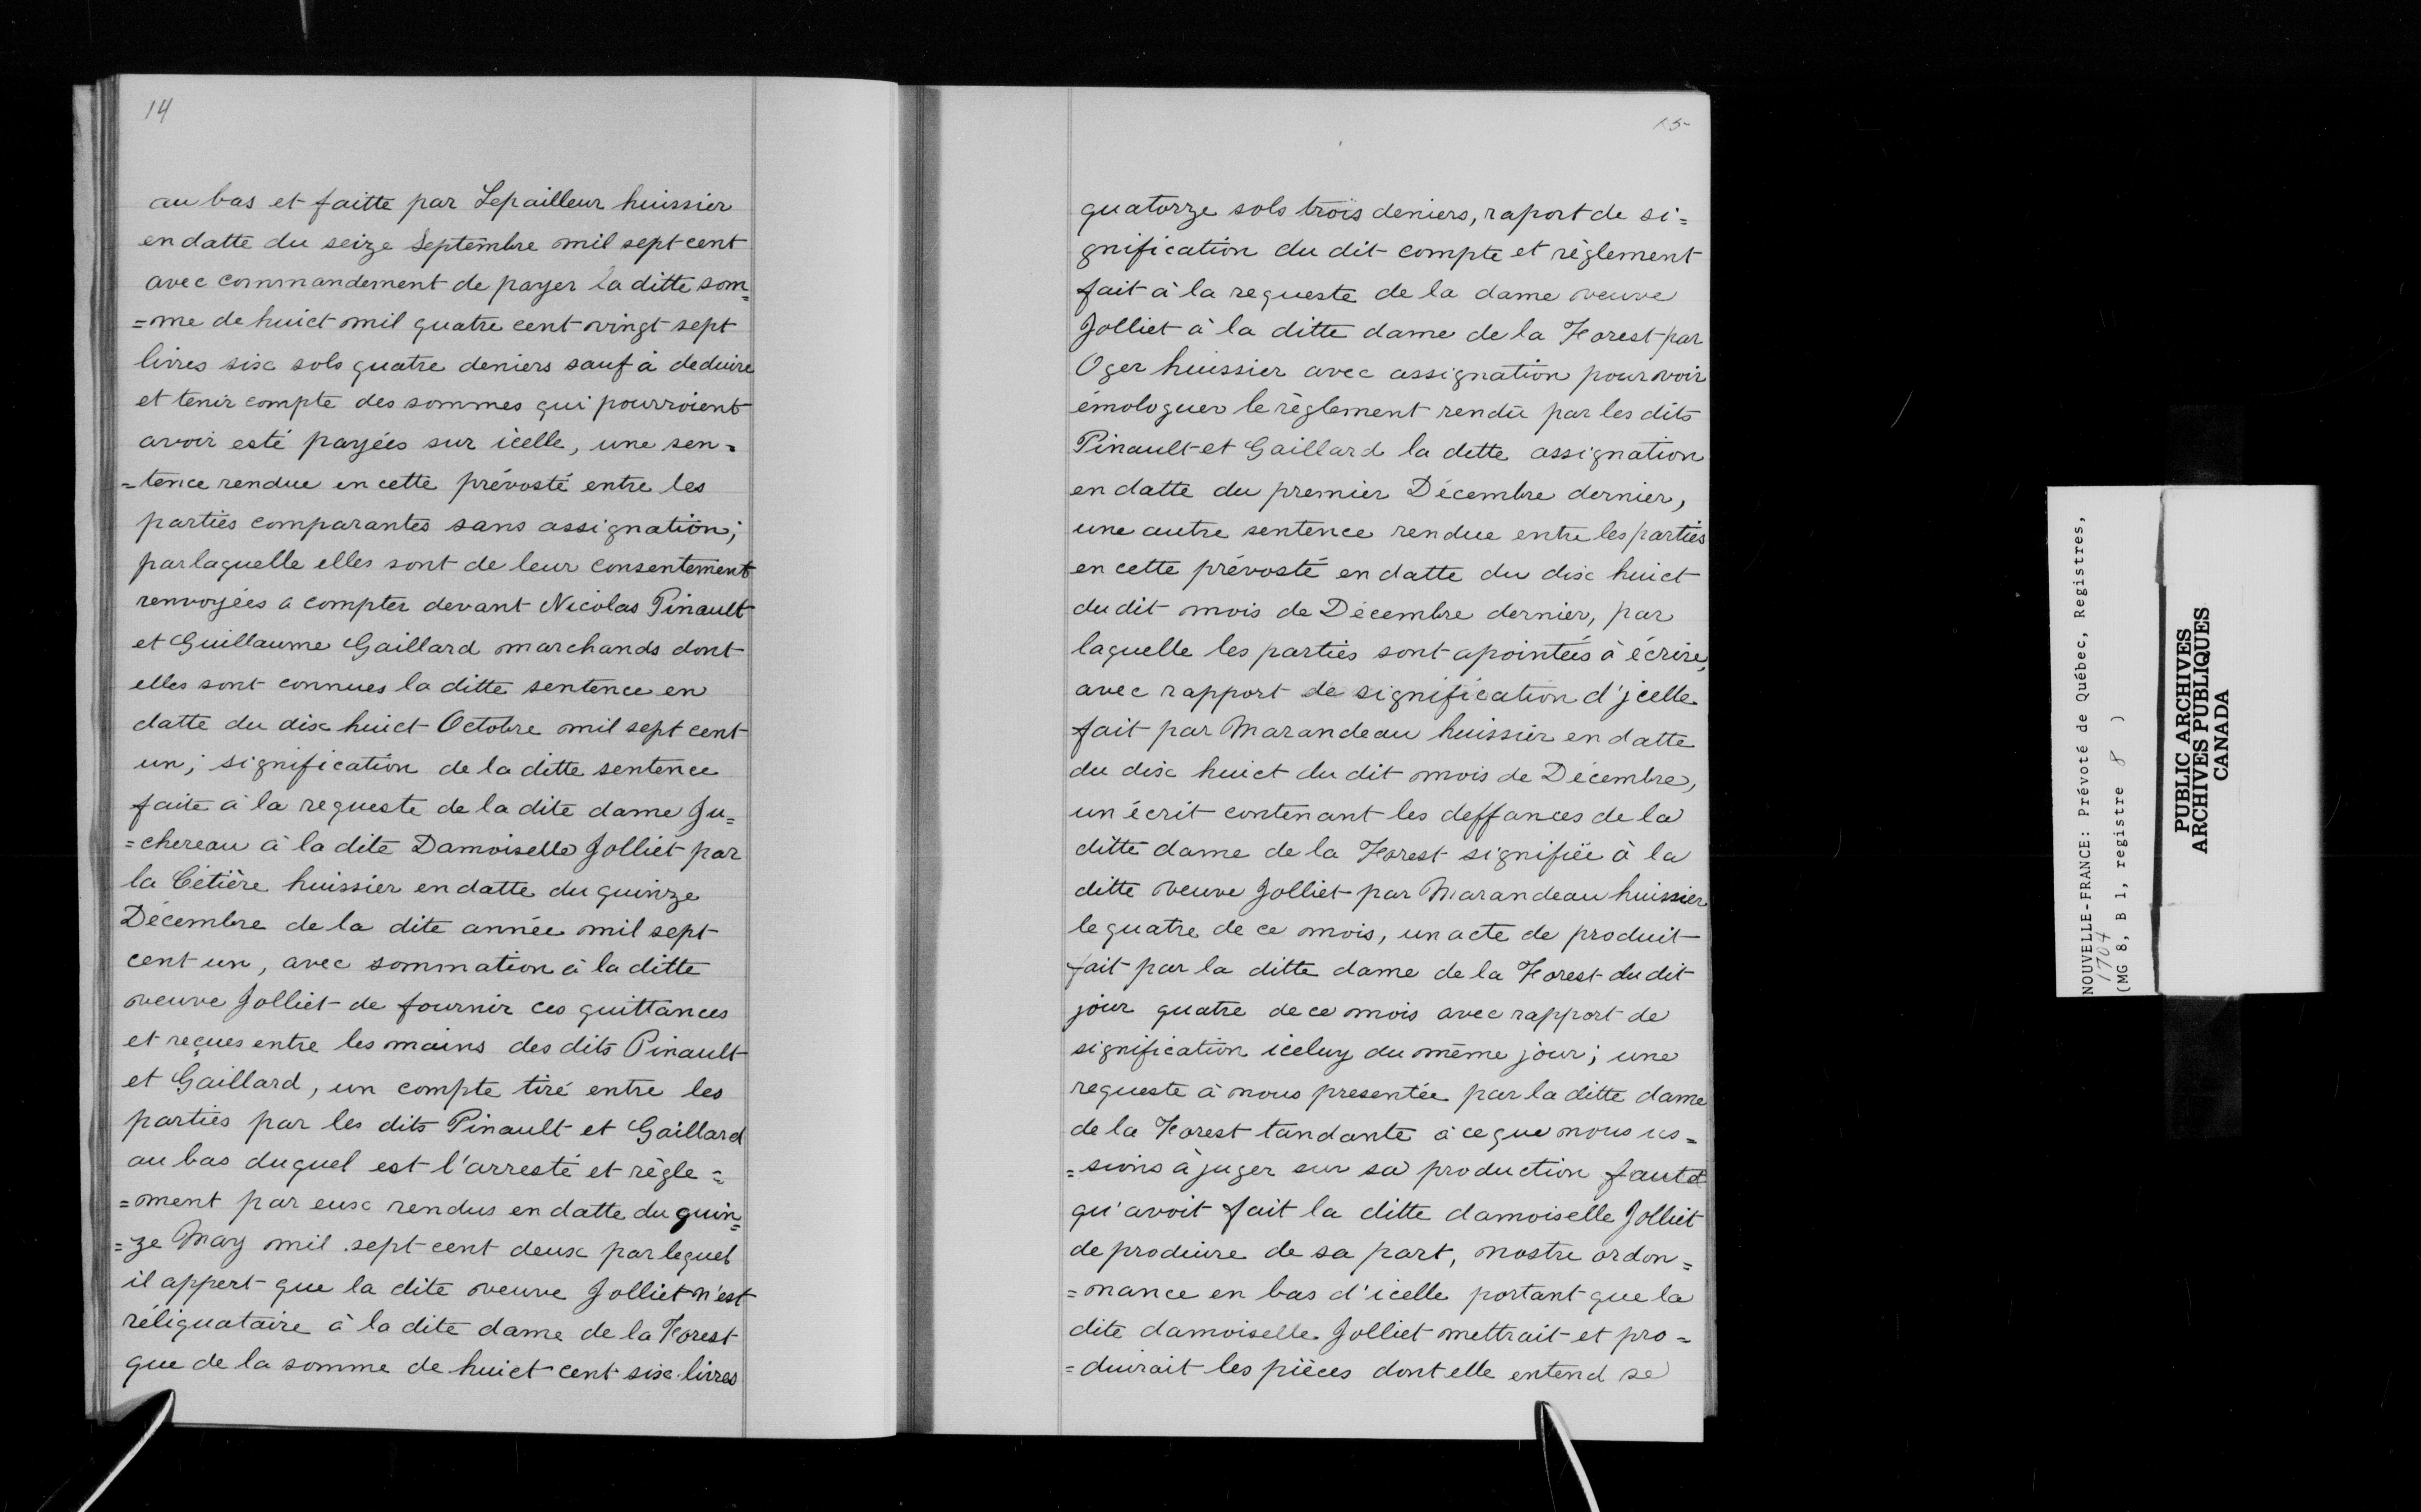 14
au bas et faitte par Lepailleur huissier
en datte du seize Septembre mil sept cent
avec commandement de payer la ditte som=
=me de huict mil quatre cent vingt sept
livres six sols quatre deniers sauf à deduire
et tenir compte des sommes qui pourroient
avoir esté payées sur icelle, une sen=
=tence rendue en cette prévosté entre les
parties comparantes sans assignation;
par laquelle elles sont de leur consentement
renvoyées a compter devant Nicolas Pinault
et Guillaume Gaillard marchands dont
elles sont connues la ditte sentence en
datte du dix huict Octobre mil sept cent
un; signification de la ditte sentence
faite à la requeste de la dite dame Ju=
=chereau à la dite Damoiselle Jolliet par
la Cetière huissier en datte du quinze
Décembre de la dite année mil sept
cent un, avec sommation à la ditte
veuve Jolliet de fournir ces quittances
et reçues entre les mains des dits Pinault
et Gaillard, un compte tiré entre les
parties par les dits Pinault et Gaillard
au bas duquel est l'arresté et règle=
=ment par eux rendus en datte du quin=
=ze May mil sept cent deux par lequel
il appert que la dite veuve Jolliet n'est
réliquataire à la dite dame de la Forest
que de la somme de huict cent six livres
15
quatorze sols trois deniers, raport de si=
gnification du dit compte et règlement
fait à la requeste de la dame veuve
Jolliet à la ditte dame de la Forest par
Oger huissier avec assignation pour voir
émologuer le règlement rendu par les dits
Pinault et Gaillard la dette assignation
en datte du premier Décembre dernier,
une autre sentence rendue entre les parties
en cette prévosté en datte du dix huict
du dit mois de Décembre dernier, par
laquelle les parties sont apointées à écrire,
avec rapport de signification d'jcelle
fait par Marandeau huissier en datte
du dix huict du dit mois de Décembre,
un écrit contenant les deffances de la
ditte dame de la Forest signifiée à la
ditte veuve Jolliet par Marandeau huissier
le quatre de ce mois, un acte de produit
fait par la ditte dame de la Forest du dit
jour quatre de ce mois avec rapport de
signification iceluy du même jour; une
requeste à nous presentée par la ditte dame
de la Forest tandante à ce que nous us=
=sions à juger sur sa production faute
qu'avoit fait la ditte damoiselle Jolliet
de produire de sa part, nostre ordon=
=nance en bas d'icelle portant que la
dite damoiselle Jolliet mettrait et pro=
=duirait les pièces dont elle entend se
NOUVELLE-FRANCE: Prévoté de Québec, Registres,
1704
(MG 8, B 1, registre 8 )
PUBLIC ARCHIVES
ARCHIVES PUBLIQUES
CANADA